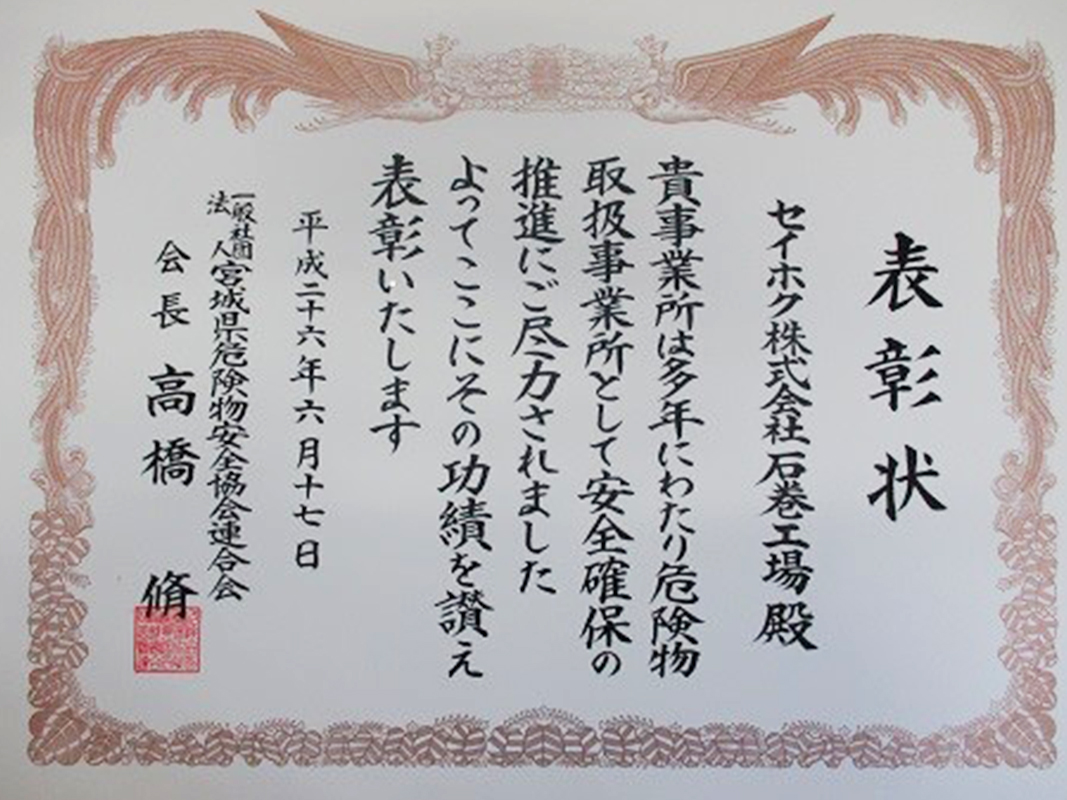 表彰状
セイホク株式会社石巻工場殿
貴事業所は多年にわたり危険物
取扱事業所として安全確保の
推進にご尽力されました
よってここにその功績を讃え
表彰いたします
平成二十六年六月十七日
一般社団法人宮城県危険物安全協会連合会
会長 高橋 脩